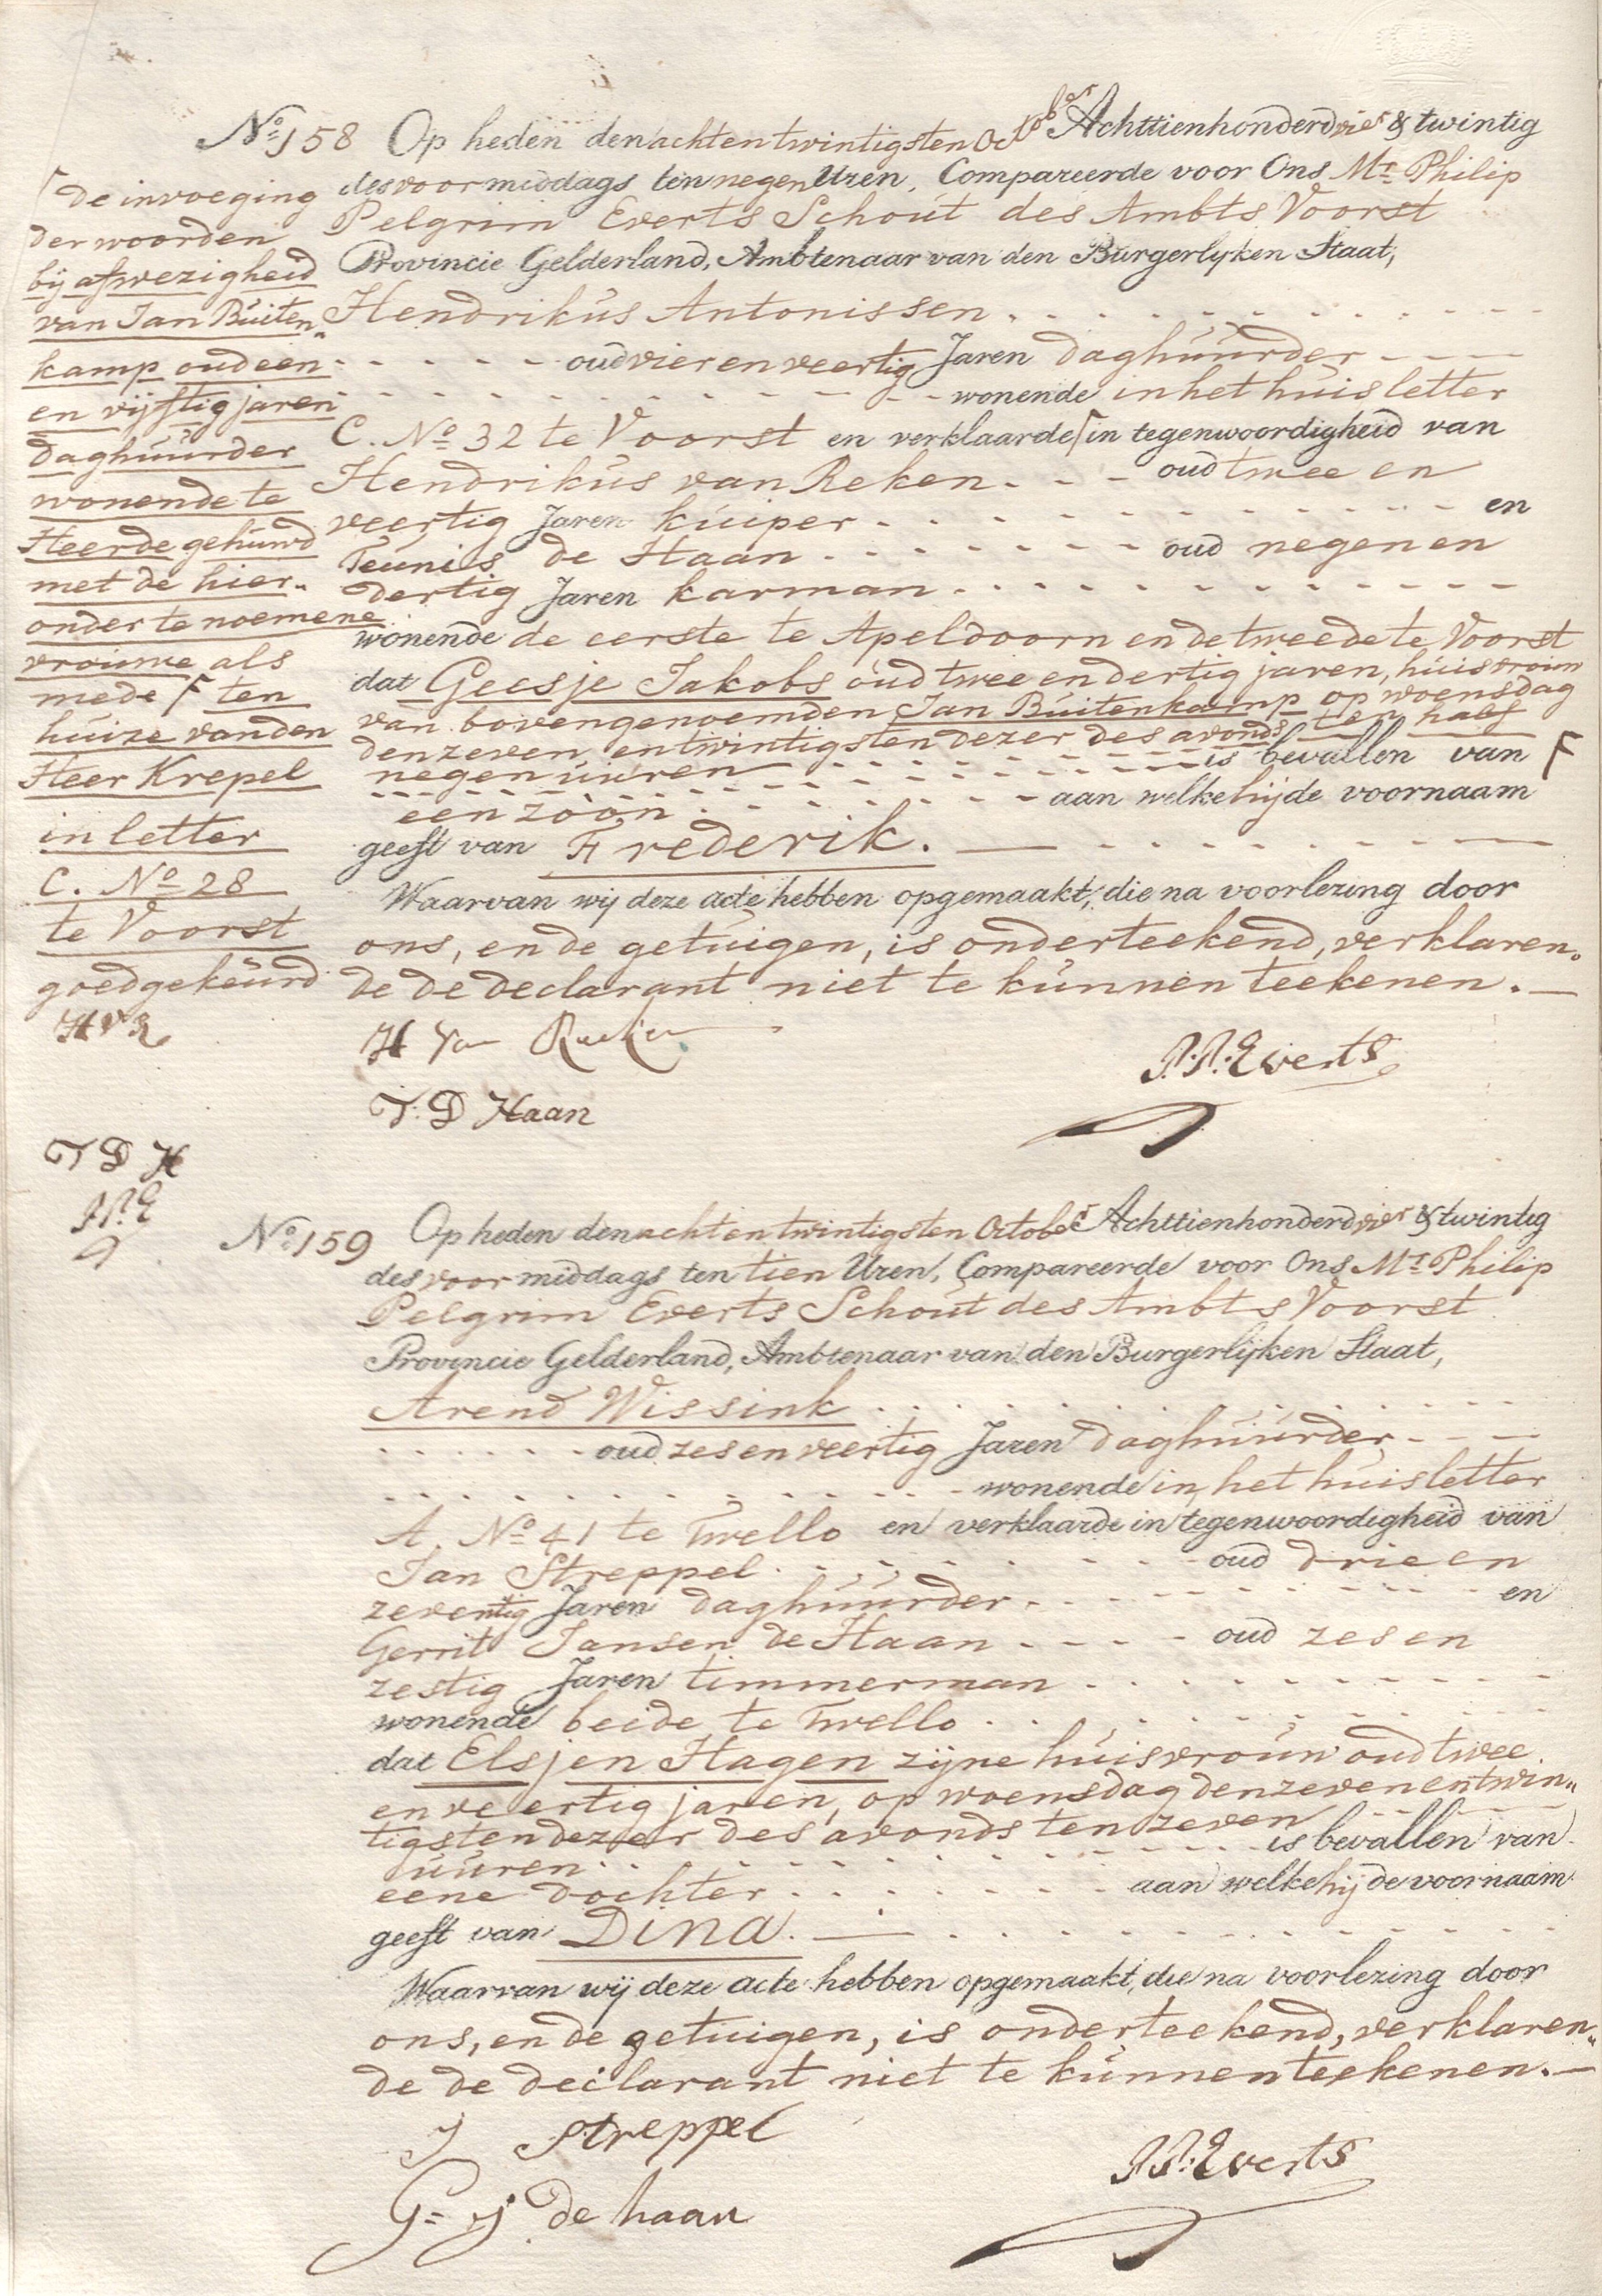 No 158 Op heden den achtentwintigsten October Achttienhonderd vier & twintig
des voormiddags ten negen Uren, Compareerde voor Ons Mr Philip
Pelgrim Everts Schout des Ambts Voorst
Provincie Gelderland, Ambtenaar van den Burgerlyken Staat,
Hendrikus Antonissen
oud vier en veertig Jaren daghuurder
wonende in het huis letter
C. No 32 te Voorst en verklaarde Γ in tegenwoordigheid van
Hendrikus van Reken oud twee en
veertig Jaren kuiper en
Teunis de Haan oud negen en
dertig Jaren karman
wonende de eerste te Apeldoorn en de tweede te Voorst
dat Geesje Jakobs oud twee en dertig jaren, huisvrouw
van bovengenoemden Jan Buitenkamp op woensdag
den zeven en twintigsten dezer des avonds ten half
negen uuren is bevallen van F
een zoon aan welke hij de voornaam
geeft van Frederik.
Waarvan wij deze acte hebben opgemaakt, die na voorlezing door
ons, en de getuigen, is onderteekend, verklaren-
de de declarant niet te kunnen teekenen.
Γ de invoeging
der woorden
bij afwezigheid
van Jan Buiten-
kamp oud een
en vijftig jaren
daghuurder
wonende te
Heerde gehuwd
met de hier-
onder te noemene
vrouwe als
mede F ten
huize van den
Heer Krepel
in letter
C. No 28
te Voorst
goedgekeurd
H V R
T D H
P.P.E
H Van Reeken
T. D Haan
P.P. Everts
No 159 Op heden den achtentwintigsten October Achttienhonderd vier & twintig
des voormiddags ten tien Uren, Compareerde voor Ons Mr Philip
Pelgrim Everts Schout des Ambts Voorst
Provincie Gelderland, Ambtenaar van den Burgerlijken Staat,
Arend Wissink
oud zes en veertig Jaren daghuurder
wonende in het huis letter
A. No 41 te Twello en verklaarde in tegenwoordigheid van
Jan Streppel oud drie en
zeventig Jaren daghuurder en
Gerrit Jansen de Haan oud zes en
zestig Jaren timmerman
wonende beide te Twello
dat Elsjen Hagen zijne huisvrouw oud twee
en veertig jaren, op woensdag den zeven en twin-
tigsten dezer des avonds ten zeven
uuren is bevallen van
eene dochter aan welke hij de voornaam
geeft van Dina.
Waarvan wij deze acte hebben opgemaakt, die na voorlezing door
ons, en de getuigen, is onderteekend, verklaren-
de de declarant niet te kunnen teekenen.
J Streppel
G= J de haan
P.P. Everts